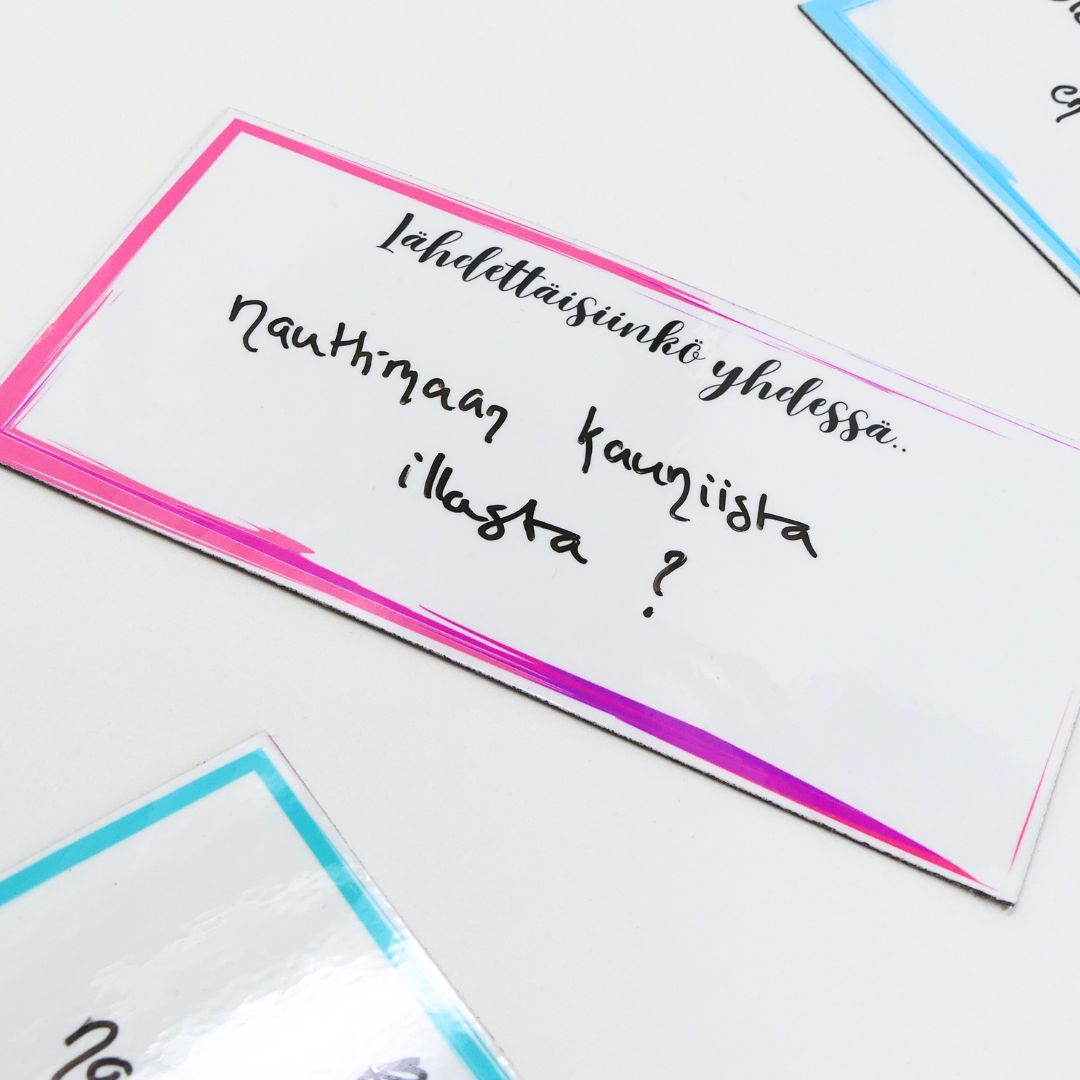 Lähdettäisiinkö yhdessä..
nauttimaan kauniista
illasta ?